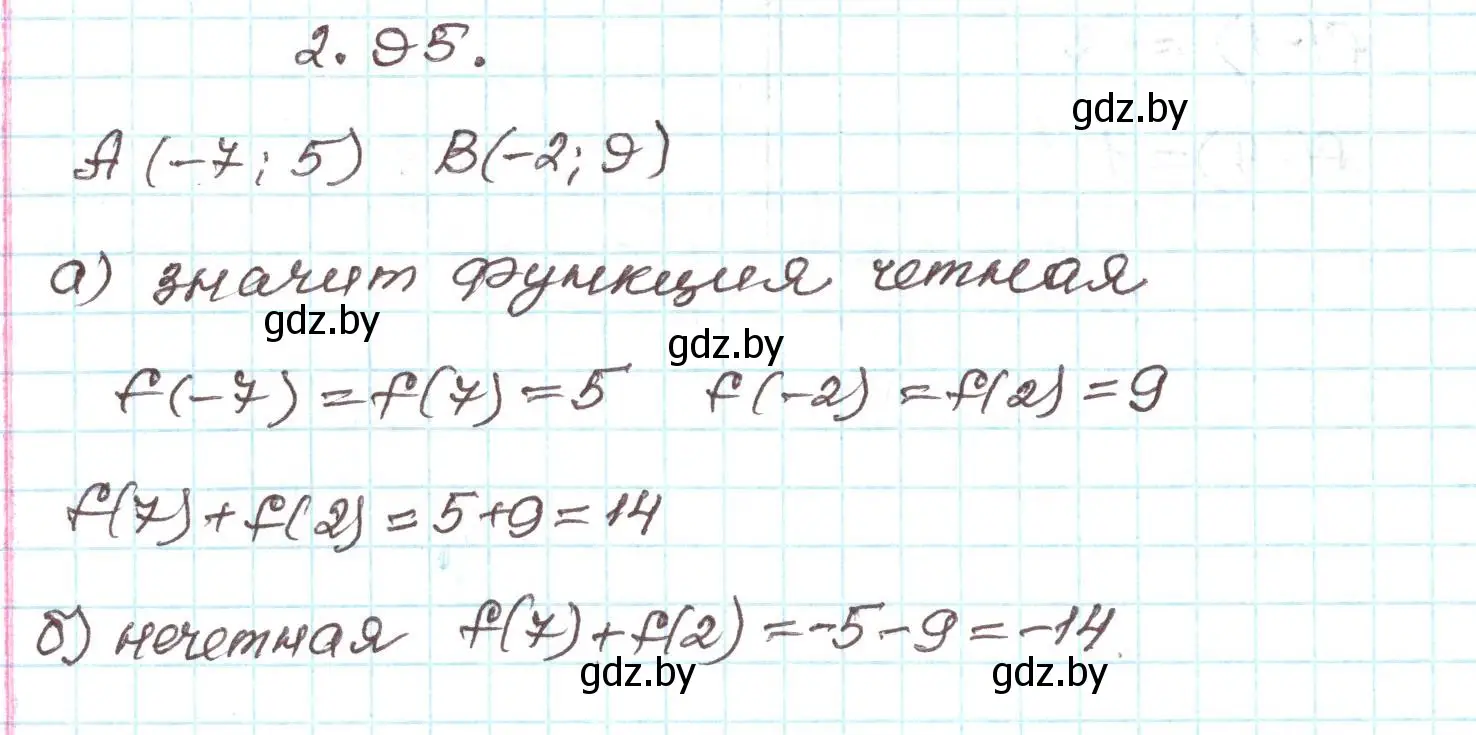 2.95.
gdz.by
A (-7; 5) B(-2; 9)
а) значит функция четная
gdz.by
gdz.by
f(-7) = f(7) = 5 f(-2) = f(2) = 9
f(7) + f(2) = 5+9 = 14
б) нечетная f(7) + f(2) = -5 - 9 = -14
gdz.by
gdz.by